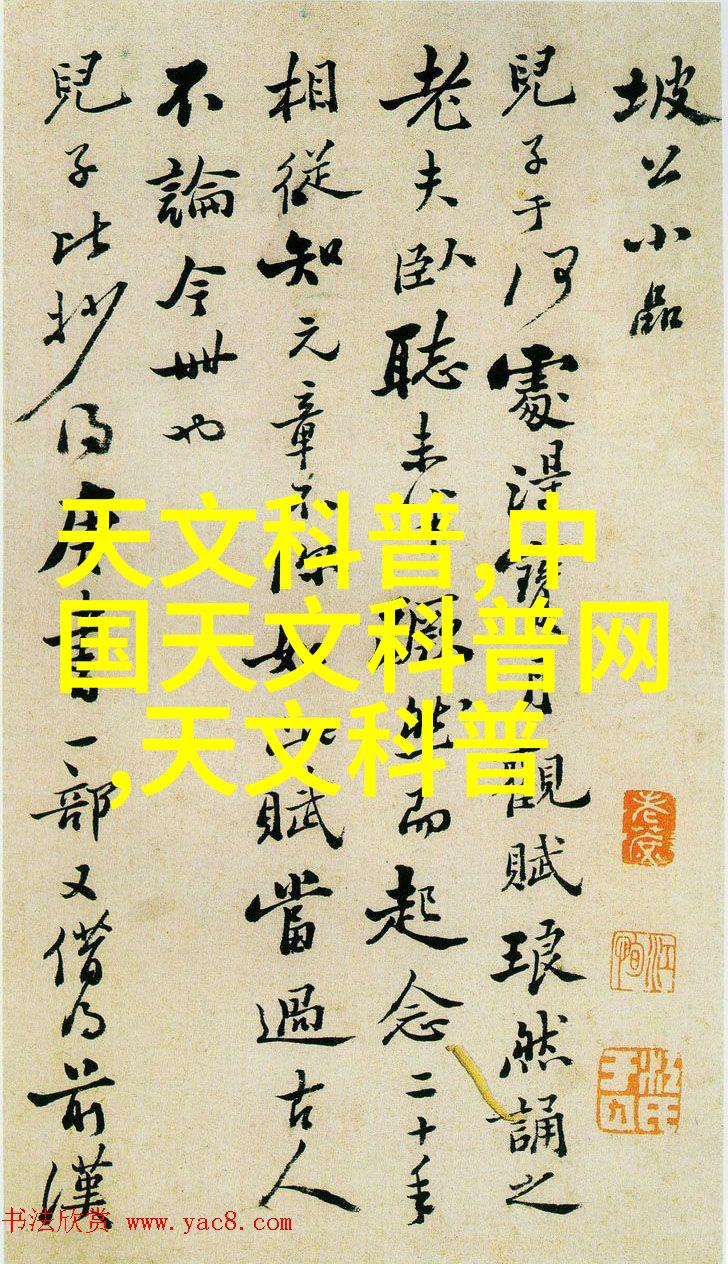 坡公小品
兒子于何處得寶月觀賦琅然誦之
老夫臥聽未半躍然而起念二十年
相從知元章不深如此賦當過古人
不論今世也
兒子比抄得唐書一部又借得前漢
天文科普,中
国天文科普网
,天文科普
书法欣赏 www.yac8.com